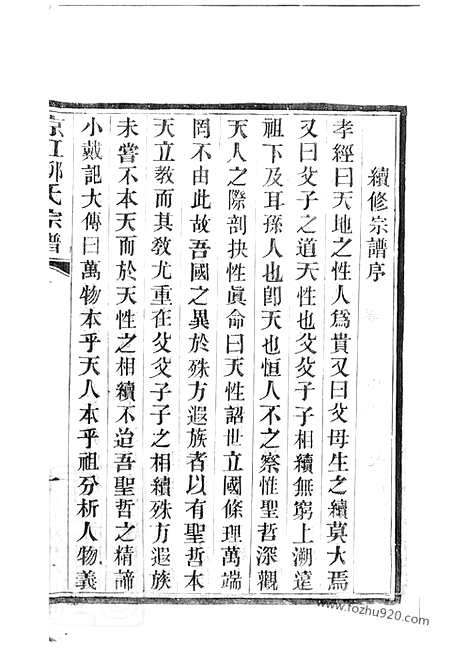 續修宗譜序
孝經曰天地之性人爲貴又曰父母生之續莫大焉
又曰父子之道天性也父父子子相續無窮上溯遠
祖下及耳孫人也卽天也恒人不之察惟聖哲深觀
天人之際剖抉性眞命曰天性詔世立國條理萬端
罔不由此故吾國之異於殊方遐族者以有聖哲本
天立教而其教尤重在父父子子之相續殊方遐族
未嘗不本天而於天性之相續不迨吾聖哲之精諦
小戴記大傳曰萬物本乎天人本乎祖分析人物義
京江郭氏宗譜
一
www.fozhu920.com